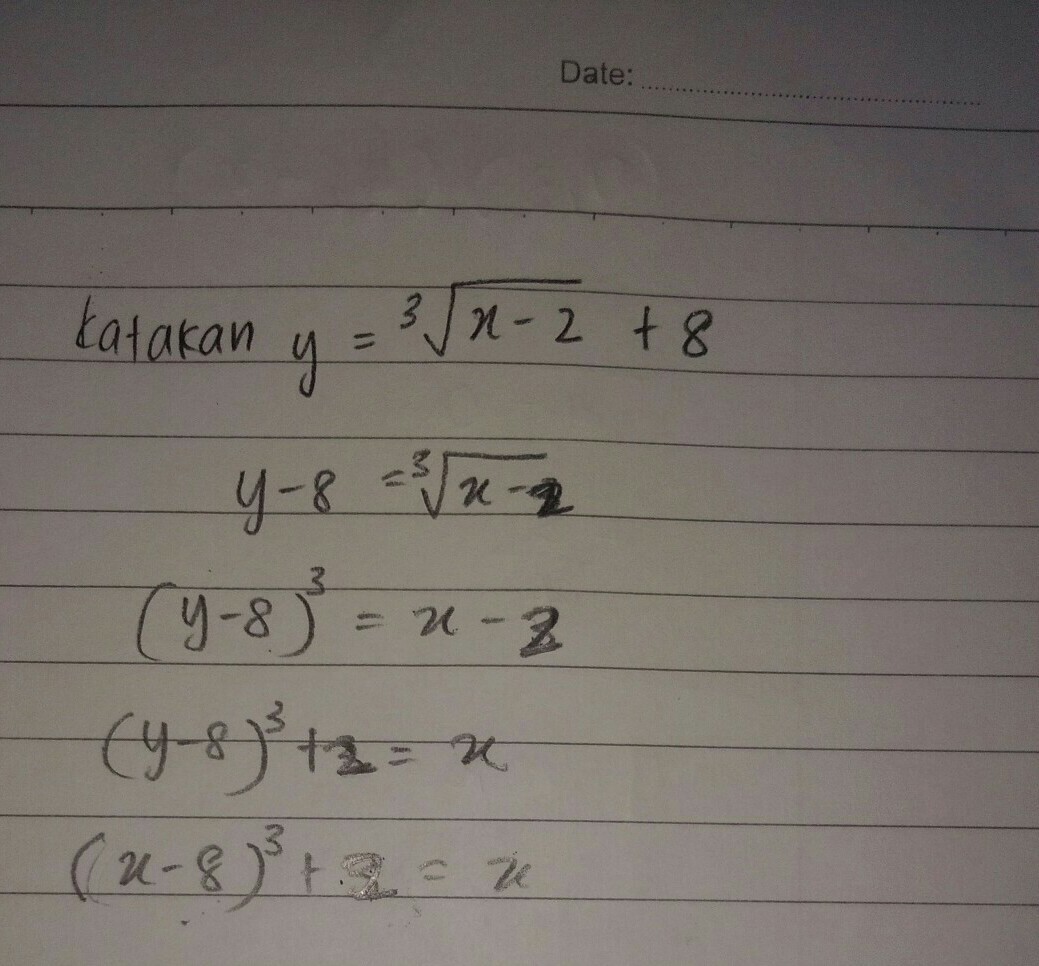 Date:
katakan y = ³√(x-2) + 8
y-8 = ³√(x-2)
(y-8)³ = x - 2
(y-8)³ + 2 = x
(x-8)³ + 2 = x